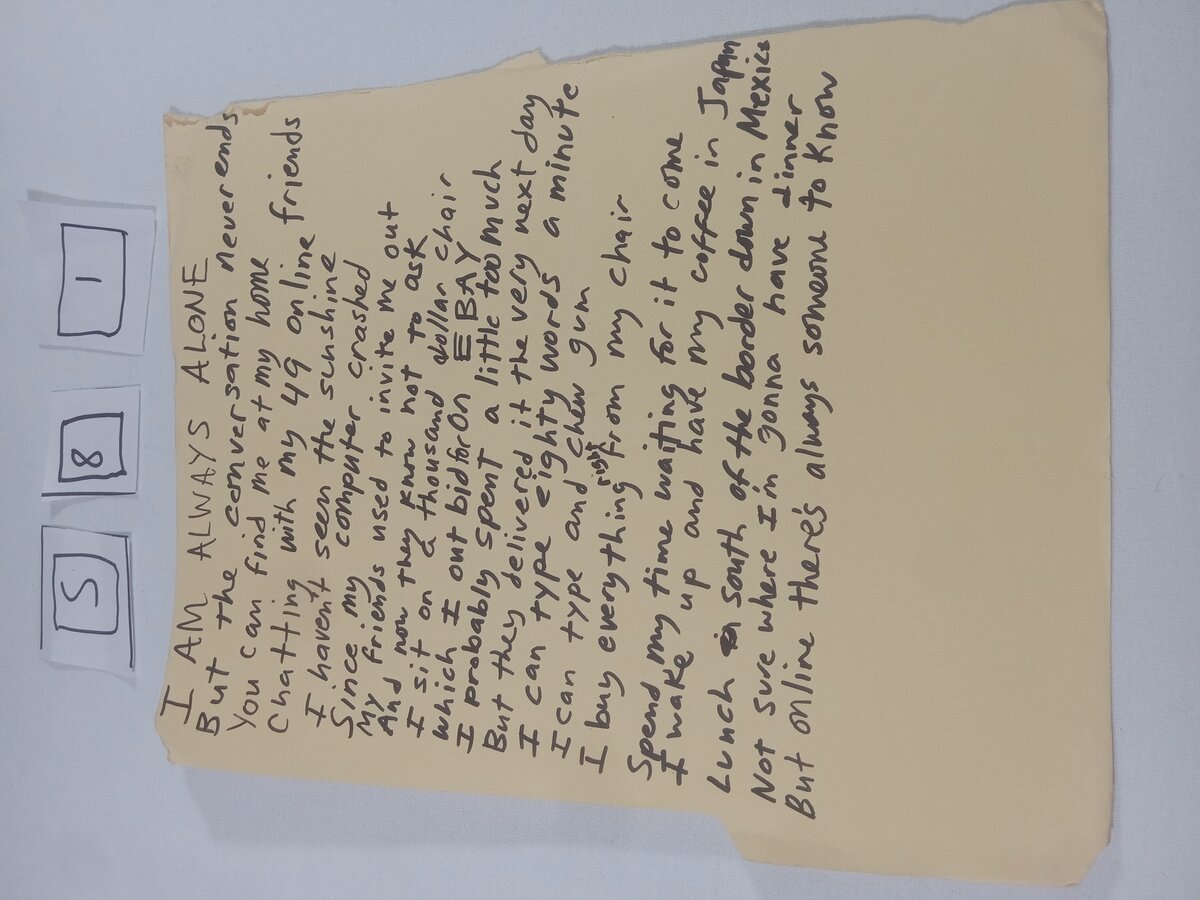 5 8 1
I AM ALWAYS ALONE
But the conversation never ends
You can find me at my home
Chatting with my 49 online friends
I haven't seen the sunshine
Since my computer crashed
My friends used to invite me out
And now they know not to ask
I sit on a thousand dollar chair
Which I out bid for On EBAY
I probably spent a little too much
But they delivered it the very next day
I can type eighty words a minute
I can type and chew gum
I buy everything right from my chair
Spend my time waiting for it to come
I wake up and have my coffee in Japan
Lunch south of the border down in Mexico
Not sure where I'm gonna have dinner
But online there's always someone to know